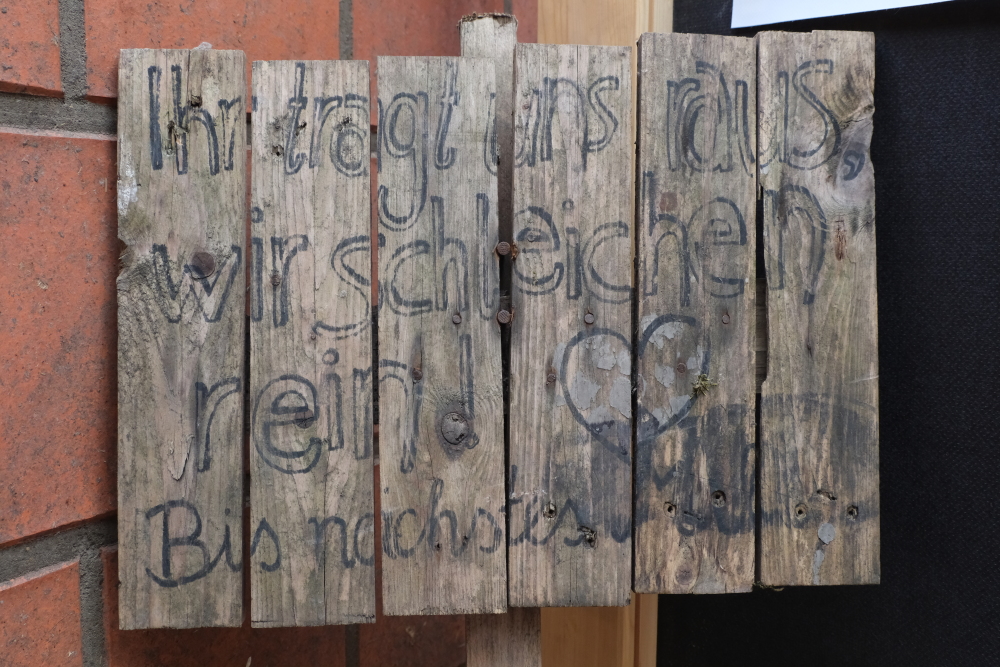 Ihr tragt uns raus,
wir schleichen
rein!
Bis nächstes